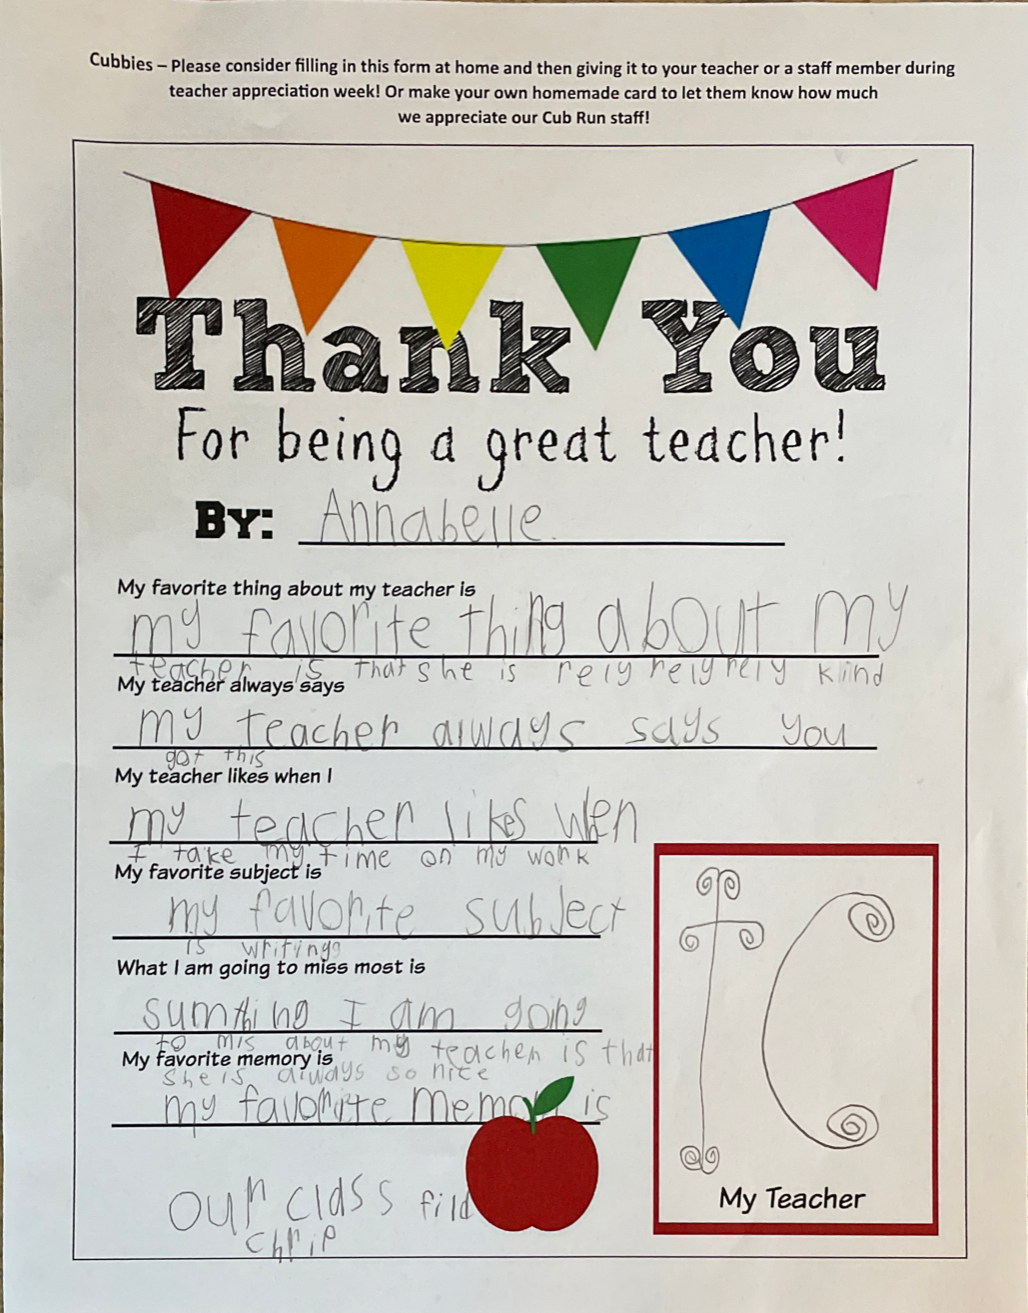 Cubbies – Please consider filling in this form at home and then giving it to your teacher or a staff member during
teacher appreciation week! Or make your own homemade card to let them know how much
we appreciate our Cub Run staff!
Thank You
For being a great teacher!
BY: Annabelle
My favorite thing about my teacher is
my favorite thing about my
teacher is that she is rely rely rely kiind
My teacher always says
my teacher always says you
got this
My teacher likes when I
my teacher likes when
I take my time on my work
My favorite subject is
my favorite subject
is writing
What I am going to miss most is
sumthing I am going
to mis about my teacher is that
she is always so nice
My favorite memory is
my favorite memory is
our class fild
chrip
My Teacher